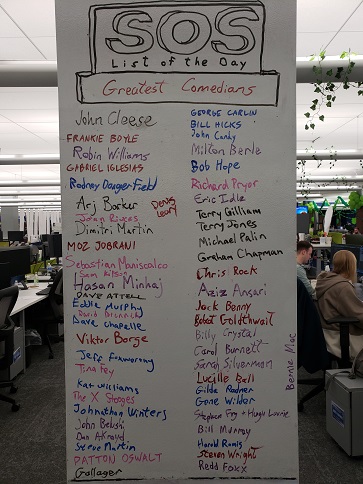 SOS
List of the Day
Greatest Comedians
John Cleese
FRANKIE BOYLE
Robin Williams
GABRIEL IGLESIAS
Rodney Dangerfield
Arj Barker
Denis Leary
Dimitri Martin
MOZ JOBRANI
Sebastian Maniscalco
Hasan Minhaj
DAVE ATTELL
Eddie Murphy
Dave Chapelle
Viktor Borge
Jeff Foxworthy
Tina Fey
Kat Williams
The X Stooges
Johnathan Winters
John Belushi
Dan Akroyd
Steve Martin
PATTON OSWALT
Gallager
GEORGE CARLIN
BILL HICKS
John Candy
Milton Berle
Bob Hope
Richard Pryor
Eric Idle
Terry Gilliam
Terry Jones
Michael Palin
Graham Chapman
Chris Rock
Aziz Ansari
Jack Benny
Bobcat Goldthwait
Billy Crystal
Carol Burnett
Sarah Silverman
Lucille Ball
Gilda Radner
Gene Wilder
Stephen Fry + Hugh Laurie
Bill Murray
Harold Ramis
Steven Wright
Redd Foxx
Bernie Mac